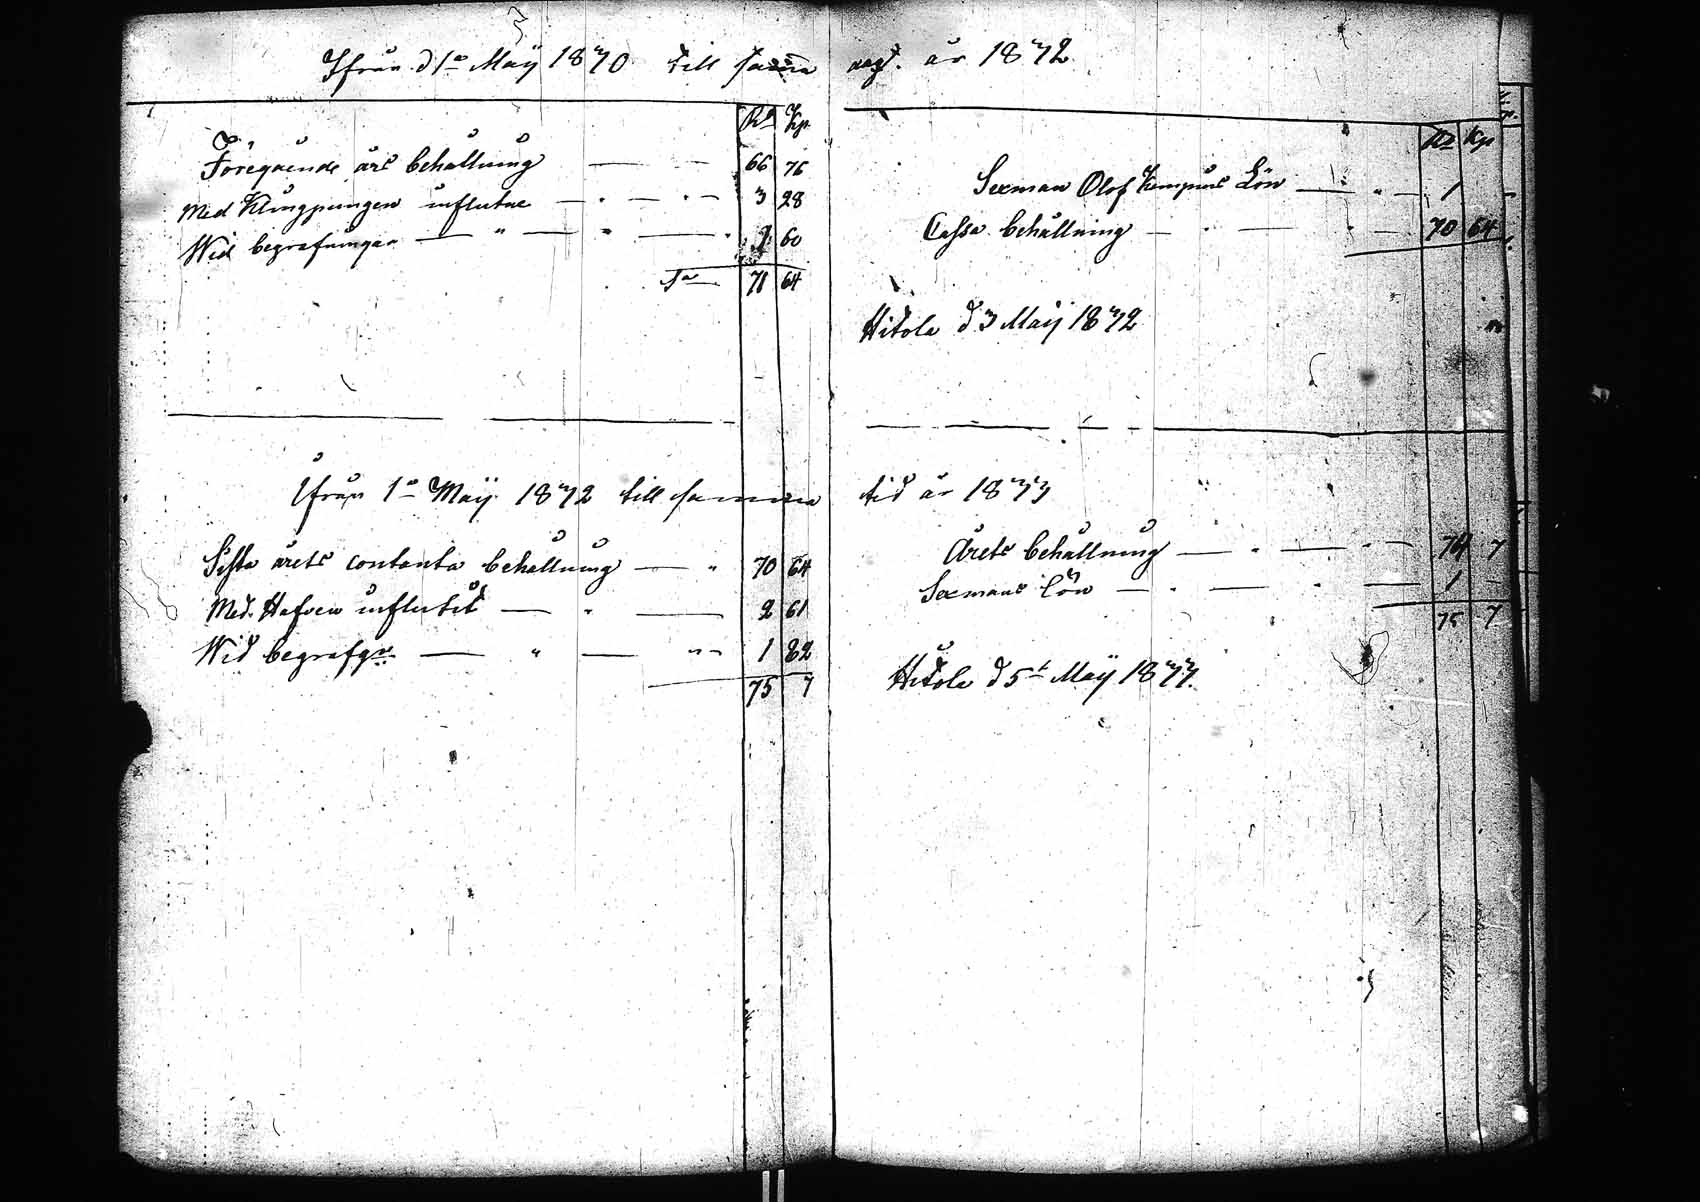 Ifrån d 1a Maÿ 1870 till samma dags. år 1872
Rb Kp
Föregående års behållning — — 66 76
Med Klingpungen influtne — " — " — 3 28
Wid begrafningar — " — " — " 1 60
Sa — 71 64
Rb Kp
Sexman Olof Kempus Lön — " — 1 —
Cassa behållning — " — " — 70 64
Hitola d 3 Maÿ 1872
Ifrån 1a Maÿ 1872 till samma tid år 1873
Sista årets contanta behållning — " 70 64
Med Hafven influtit — " — 2 61
Wid begrafgr — " — " — 1 82
75 7
Årets behållning — " — " — 74 7
Sexmans Lön — " — " — 1 —
75 7
Hitola d 5t Maÿ 1873.